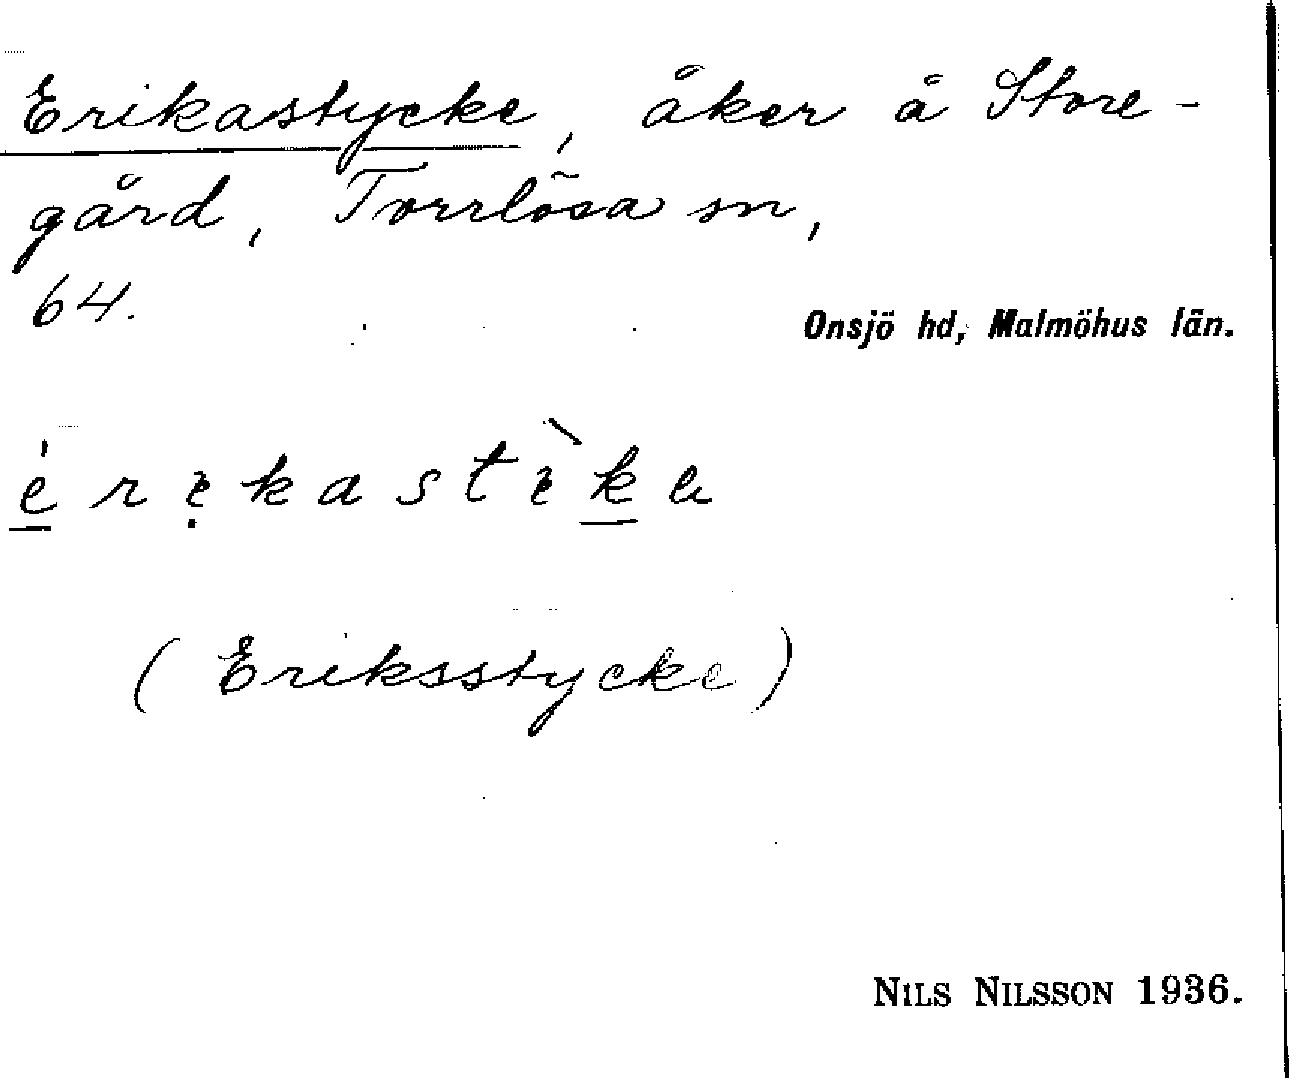 Erikastycke, åker å Store-
gård, Torrlösa sn,
64.
Onsjö hd, Malmöhus län.
(Eriksstycke)
NILS NILSSON 1936.